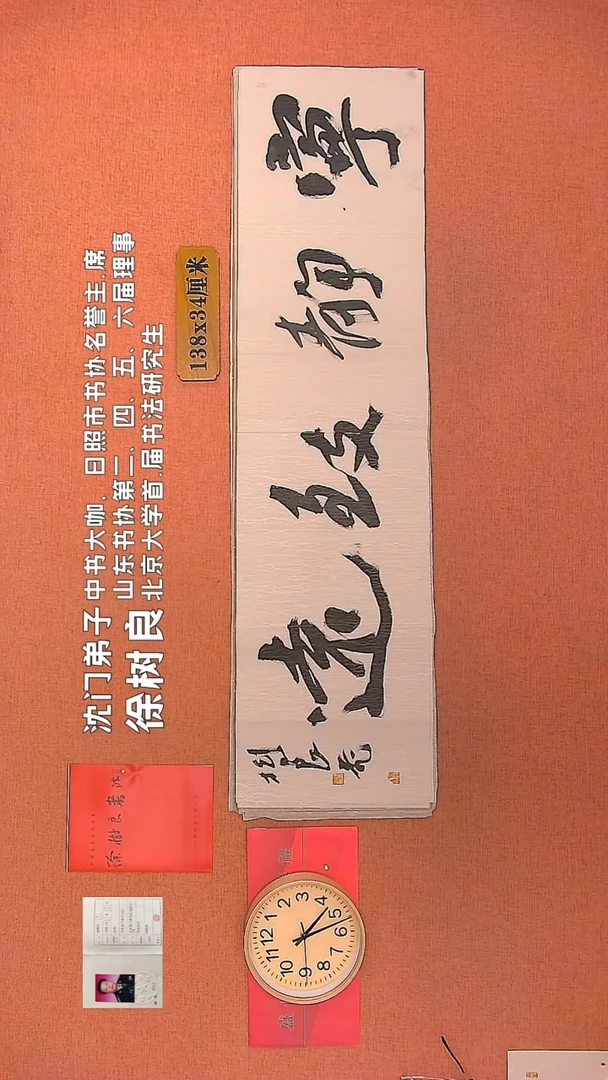 沈门弟子 中书大咖、日照市书协名誉主.席
山东书协第二、四、五、六届理事
徐树良 北京大学首.届书法研究生
138x34厘米
寧靜致遠
樹良書
徐樹良書法
12
1
2
3
4
5
6
7
8
9
10
11